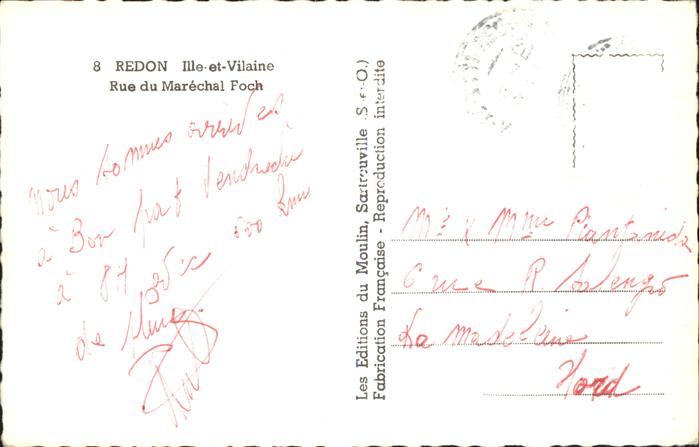 8 REDON Ille-et-Vilaine
Rue du Maréchal Foch
nous sommes arrivés
à Bon port Vendredi
à 8H 600 Kms
de
Les Editions du Moulin, Sartrouville (S.-et-O.)
Fabrication Française - Reproduction interdite
Mr & Mme
6 rue
La madeleine
Nord